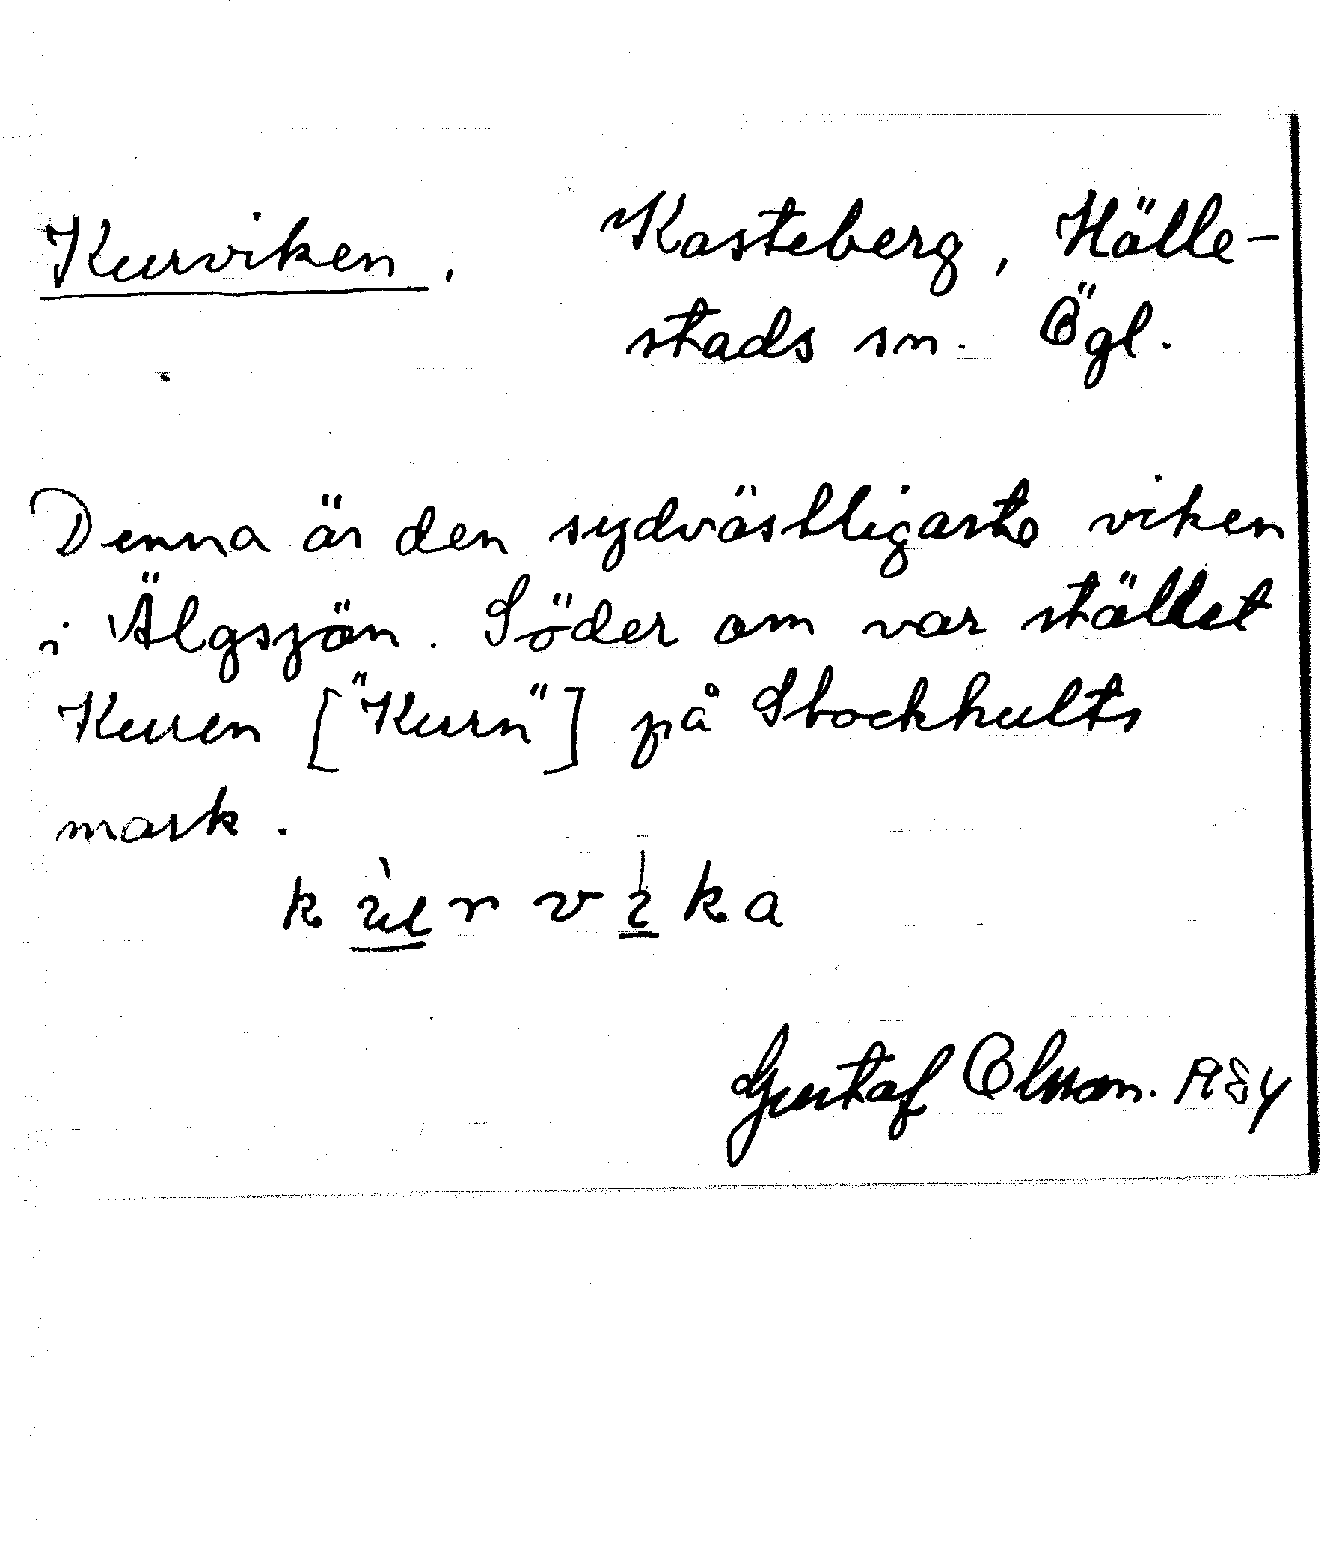 Kurviken. Kasteberg, Hälle-
stads sn. Ögl.
Denna är den sydvästligaste viken
i Älgsjön. Söder om var stället
Kuren ["Kurn"] på Stockhults
mark.
Gustaf Olsson. 1984